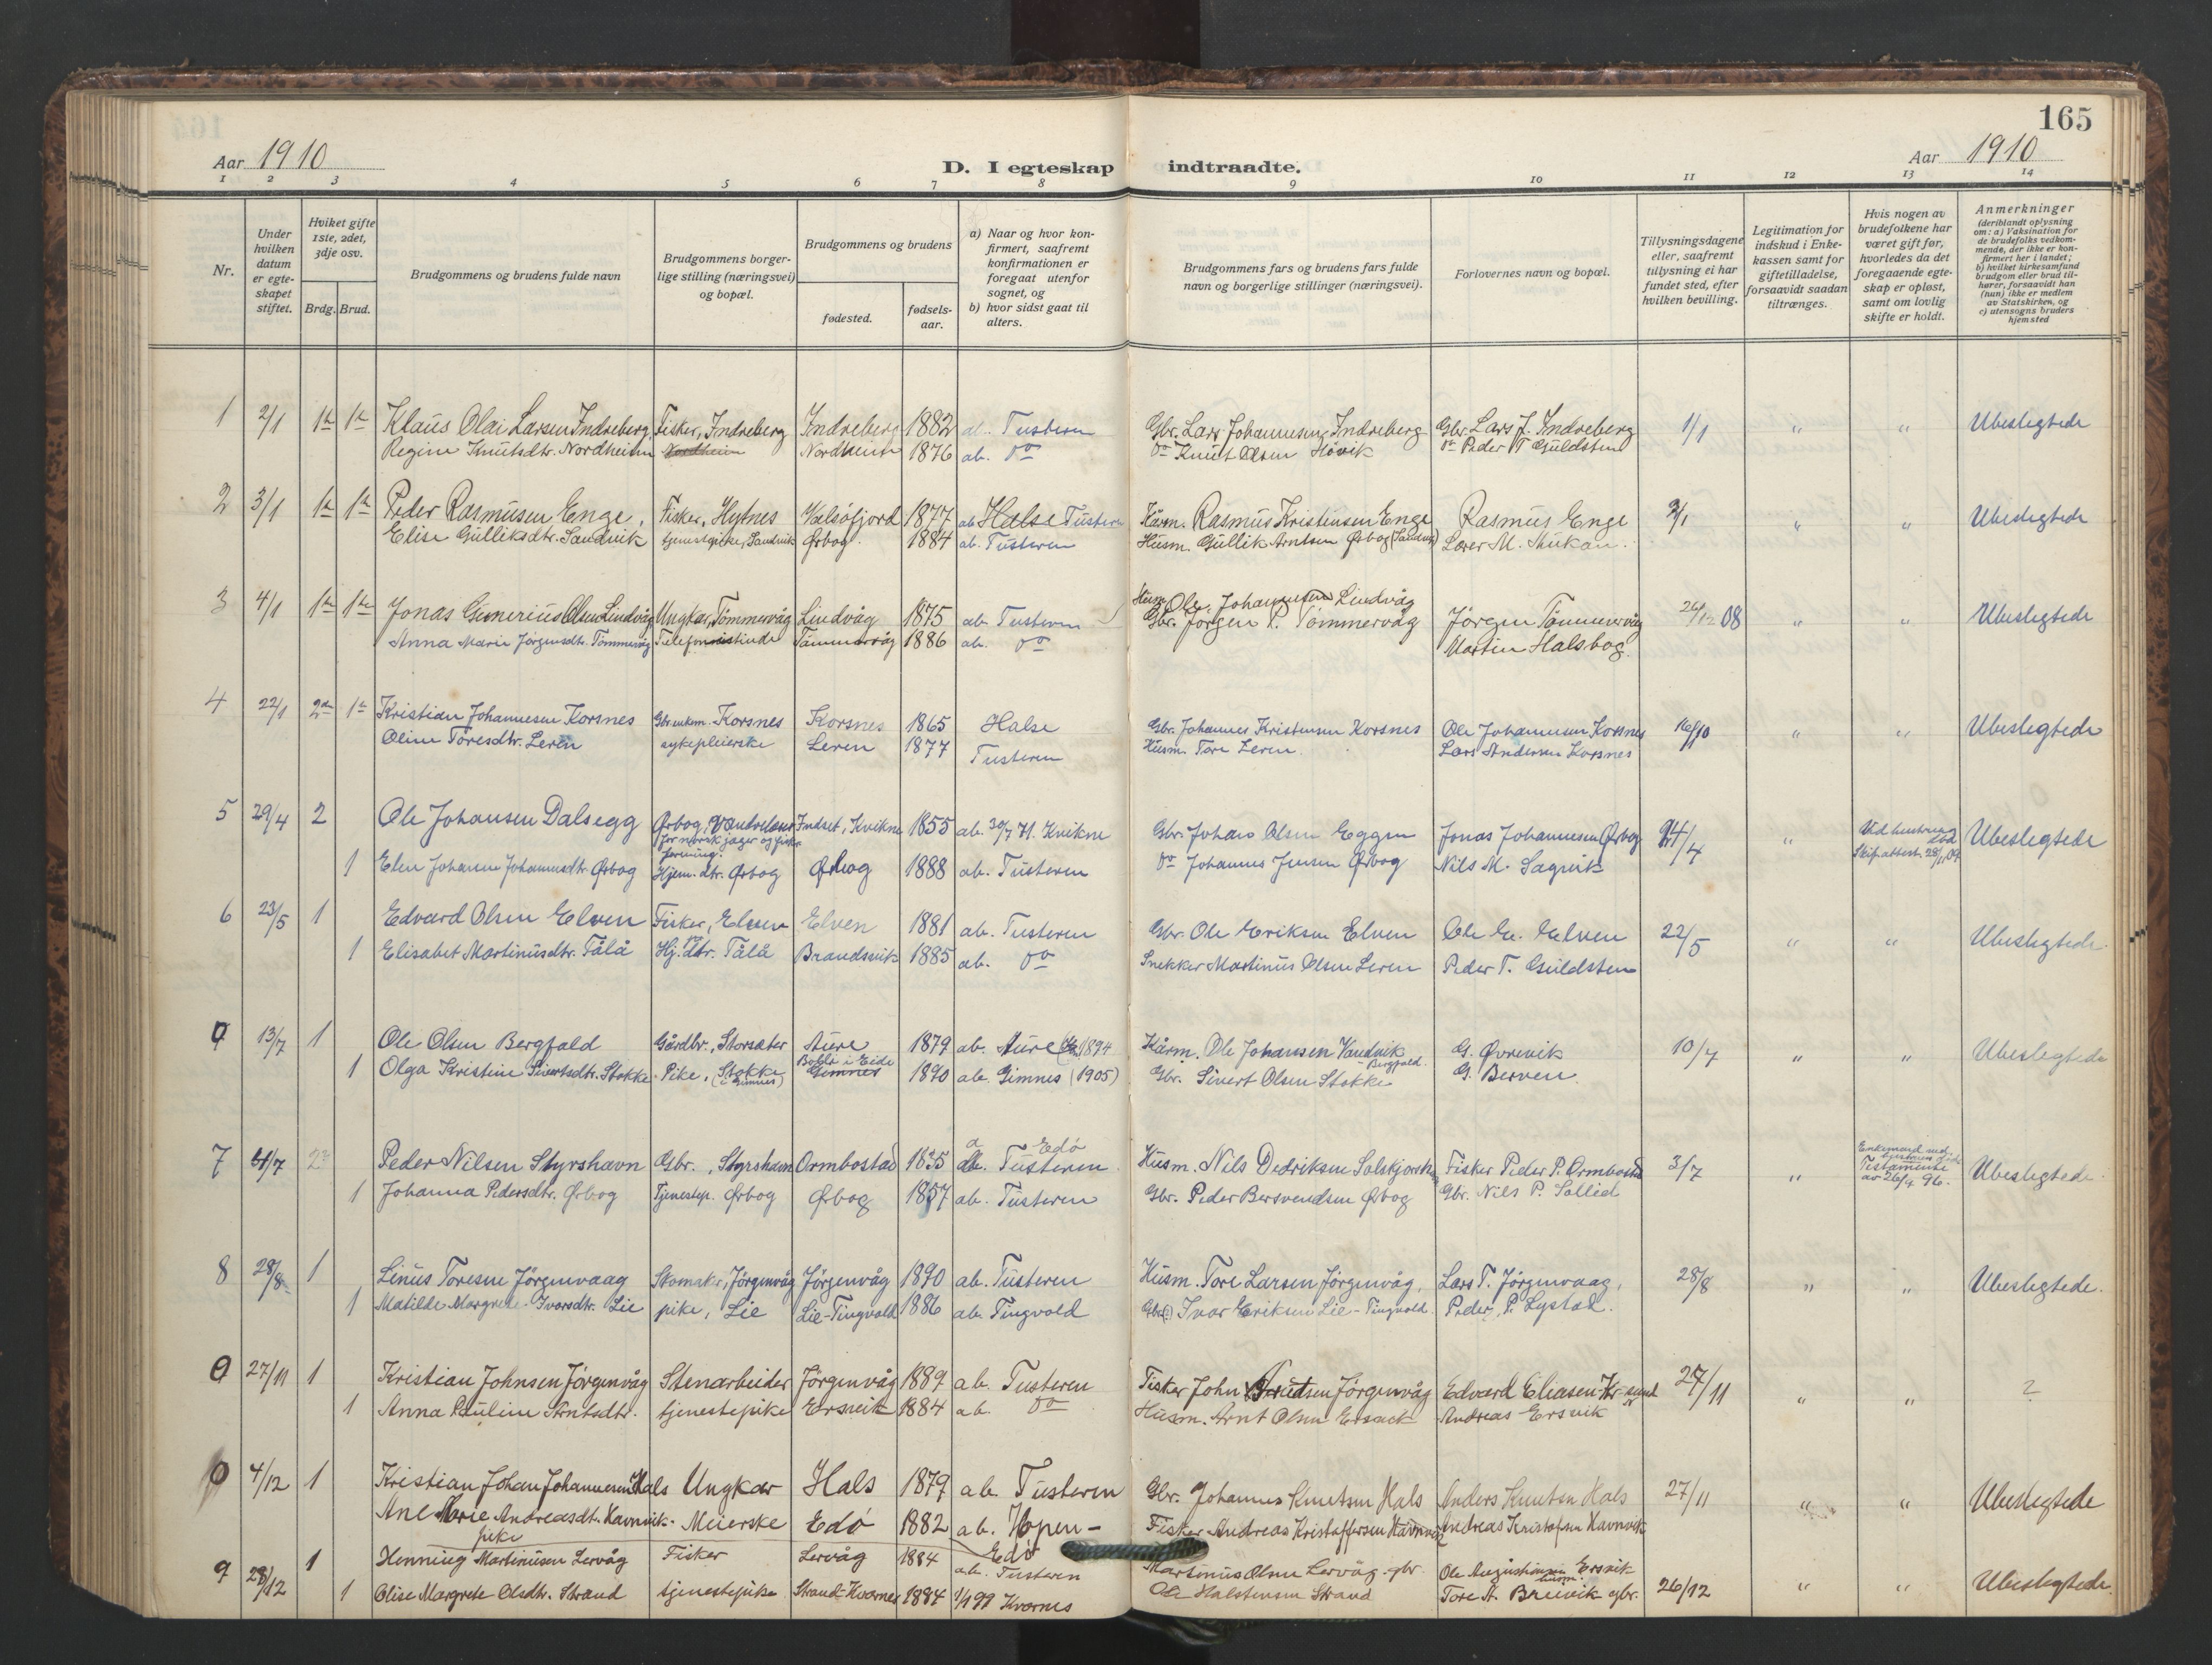 165
Aar 1910
D. I egteskap indtraadte.
Aar 1910
1 2 3 4 5 6 7 8 9 10 11 12 13 14
Nr.
Under hvilken datum er egteskapet stiftet.
Hvilket gifte 1ste, 2det, 3dje osv.
Brdg. Brud.
Brudgommens og brudens fulde navn
Brudgommens borgerlige stilling (næringsvei) og bopæl.
Brudgommens og brudens
fødested.
fødselsaar.
a) Naar og hvor konfirmert, saafremt konfirmationen er foregaat utenfor sognet, og
b) hvor sidst gaat til alters.
Brudgommens fars og brudens fars fulde navn og borgerlige stillinger (næringsvei).
Forlovernes navn og bopæl.
Tillysningsdagene eller, saafremt tillysning ei har fundet sted, efter hvilken bevilling.
Legitimation for indskud i Enkekassen samt for giftetilladelse, forsaavidt saadan tiltrænges.
Hvis nogen av brudefolkene har været gift før, hvorledes da det foregaaende egteskap er opløst, samt om lovlig skifte er holdt.
Anmerkninger (deriblandt oplysning om: a) Vaksination for de brudefolks vedkommende, der ikke er konfirmert her i landet; b) hvilket kirkesamfund brudgom eller brud tilhører, forsaavidt han (hun) ikke er medlem av Statskirken, og c) utensogns bruders hjemsted
1 2/1 1ste 1ste Klaus Olai Larsen Indreberg Fisker, Indreberg Indreberg 1882 ab. Tusteren Gbr. Lars Johannesen Indreberg Gbr. Lars J. Indreberg 1/1 " " Ubeslegtede
Regine Knutsdtr. Nordheim Nordheim Nordheim 1876 ab. do do Knut Olsen Høvik do Peder T Guldsten
2 3/1 1ste 1ste Peder Rasmusen Enge, Fisker, Hytnes Valsøfjord 1877 ab Halse Tusteren Kårm. Rasmus Kristensen Enge Rasmus Enge 2/1 " " Ubeslegtede
Elise Gulliksdtr. Sandvik tjenestpike, Sandvik Ørbog. 1884 ab. Tusteren Husm. Gullik Arntsen Ørbog (Sandvik) Lærer M. Stukan.
3 4/1 1ste 1ste Jonas Gunerius Olsen Lindvåg Ungkar, Tømmervåg Lindvåg 1875 ab Tusteren Husm. Ole Johannesen Lindvåg Jørgen Tømmervåg 26/12 08 " " Ubeslegtede
Anna Marie Jørgensdtr. Tømmervåg Telefonistinde Tømmervåg 1886 ab. do Gbr. Jørgen P. Tømmervåg Martin Halsbog.
4 22/1 2den 1ste Kristian Johannesen Korsnes Gbr. enkem. Korsnes Korsnes 1865 Halse Gbr. Johannes Kristensen Korsnes Ole Johannesen Korsnes 16/10 " " Ubeslegtede
Oline Toresdtr. Leren sykepleierske Leren 1877 Tusteren Husm. Tore Leren. Lars Andersen Korsnes
5 29/4 2 Ole Johansen Dalsegg Ørbog, Vandrelærer Indset, Kvikne 1855 ab. 30/7 71. Kvikne Gbr. Johans Olsen Eggen Jonas Johannesen Ørbog 24/4 " Ved hustrus død Skifteattest 28/11 09 Ubeslegtede
for norsk jæger og fisker forening.
1 Elen Johanne Johannesdtr Ørbog Hjem. dtr. Ørbog Ørbog 1888 ab. Tusteren do Johannes Jensen Ørbog Nils M. Sagvik
6 23/5 1 Edvard Olsen Elven Fisker, Elven Elven 1881 ab. Tusteren Gbr. Ole Eriksen Elven Ole E. Elven 22/5 " " Ubeslegtede
1 Elisabet Martinusdtr. Tålå Hj. dtr. Tålå Brandsvik 1885 ab. do Snekker Martinus Olsen Leren Peder T. Guldsten
13/7 1 Ole Olsen Bergfald Gårdbr., Storsæter Aure 1879 ab. Aure 1894 Kårm. Ole Johansen Vandvik Bergfald. G. Øvrevik 10/7 " " Ubeslegtede
1 Olga Kristine Sivertsdtr. Stokke Pike, Stokke (i Gimnes) Bolli i Eide Gimnes 1890 ab. Gimnes (1905) Gbr. Sivert Olsen Stokke G. Berven
7 4/7 2 Peder Nilsen Styrshavn Gbr., Styrshavn Ormbostad 1835 Edø ab. Tusteren. Husm. Nils Dedriksen Fisker Peder P. Ormbostad 3/7 " Testamente av 26/4 96. Ubeslegtede.
1 Johanna Pedersdtr. Ørbog Tjenestep. Ørbog Ørbog 1857 ab. Tusteren Gbr. Peder Bersvendsen Ørbog Gbr. Nils P. Sollid
8 28/8 1 Linus Toresen Jörgenvaag Skomaker, Jörgenvåg Jörgenvåg 1890 ab. Tusteren Husm. Tore Larsen Jörgenvåg, Lars T. Jörgenvaag, 28/8 " " Ubeslegtede.
1 Matilde Margrete Ivarsdtr. Lie pike, Lie Lie-Tingvold 1886 ab. Tingvold Gbr(?) Ivar Eriksen Lie - Tingvold. Peder P. Lystad.
27/11 1 Kristian Johnsen Jörgenvåg Stenarbeider Jörgenvåg 1889 ab. Tusteren Fisker John Knutsen Jörgenvåg Edvard Eliasen 27/11 " " ?
1 Anna Pauline Arntsdtr. tjenestepike Ersvik 1884 ab. do Husm. Arnt Olsen Andreas Ersvik
4/12 1 Kristian Johan Johannesen Hals Ungkar Hals 1879 ab Tusteren Gbr. Johannes Knutsen Hals Anders Knutsen Hals 27/11 " " Ubeslegtede
Ane Marie Andreasdt. Havnvik. Meierske Edö 1882 ab. Hopen - Edö Fisker Andreas Kristoffersen Havnvik Andreas Kristofsen Havnvik
pike
9 28/12 1 Henning Martinusen Lervåg Fisker Lervåg 1884 ab. Tusteren Martinus Olsen Lervåg gbr. Ole Augustinsen Ersvik husm. 26/12 " " Ubeslegtede.
1 Olise Margrete Olsdtr. Strand tjenestepike Strand-Kvernes 1884 1/1 99 Kvernes Ole Halstensen Strand Tore A. Breivik gbr.